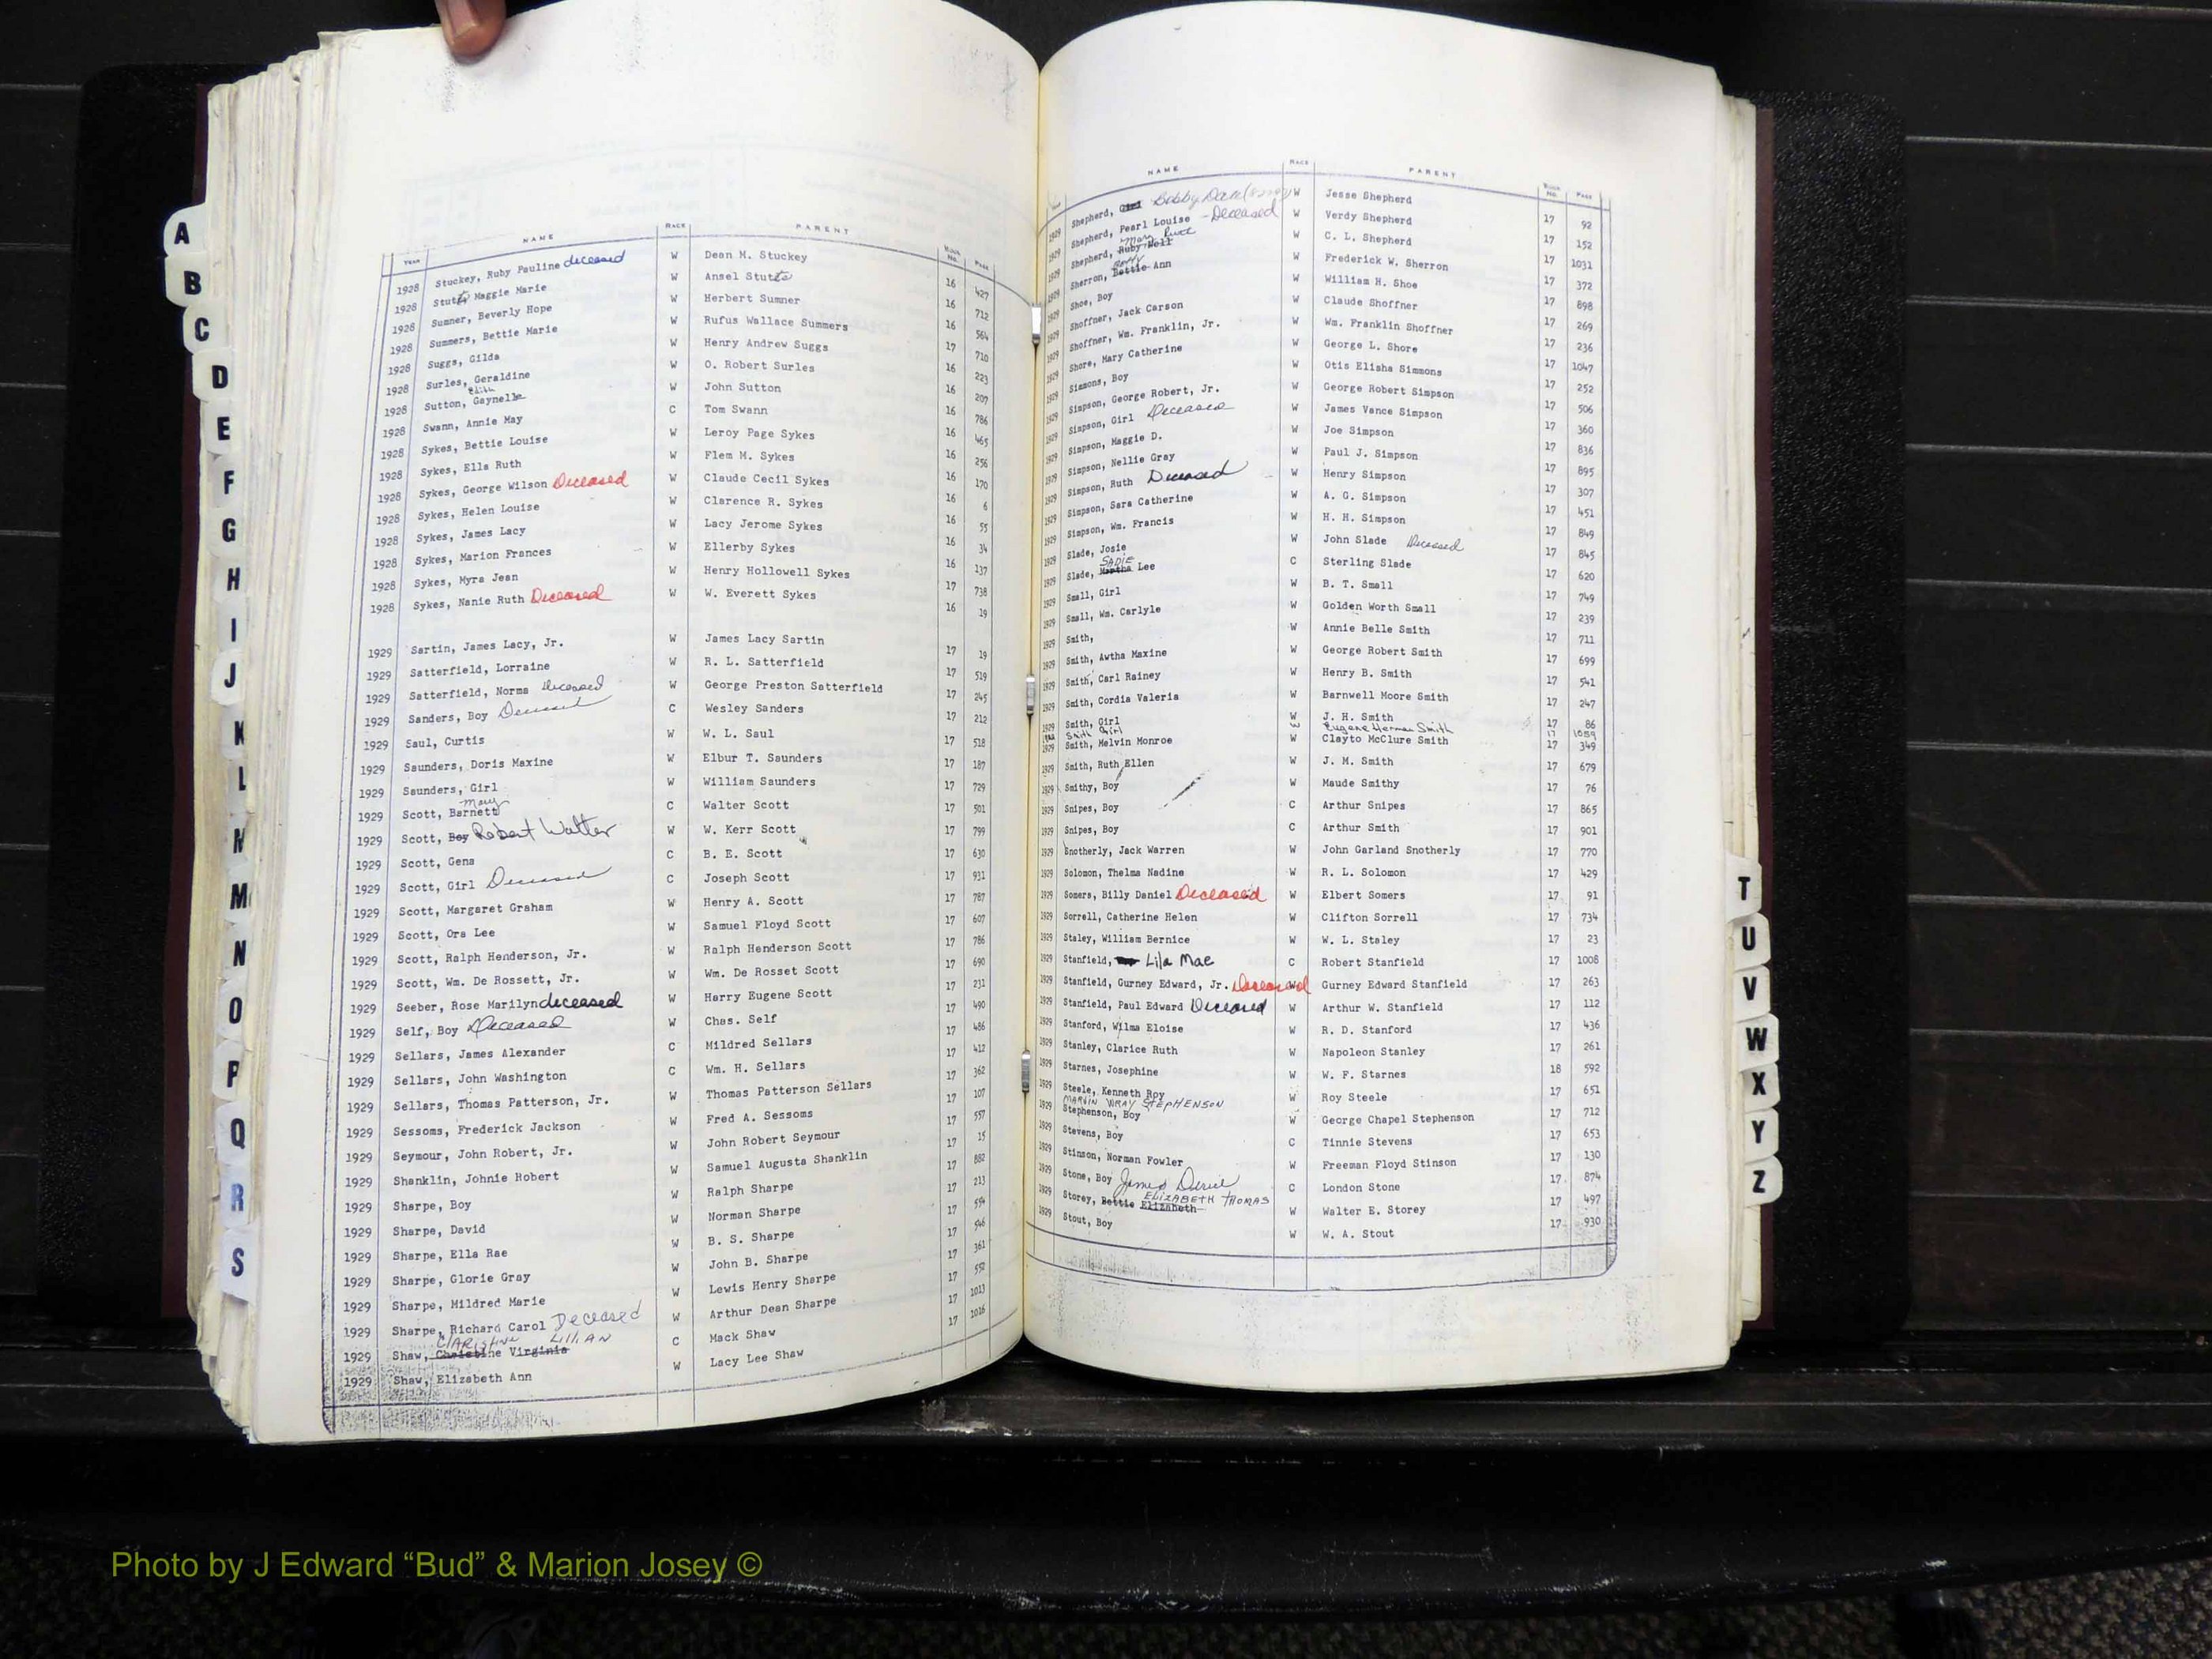 YEAR NAME RACE PARENT BOOK NO. PAGE
1928 Stuckey, Ruby Pauline deceased W Dean M. Stuckey 16 427
1928 Stutts Maggie Marie W Ansel Stutts 16 712
1928 Sumner, Beverly Hope W Herbert Sumner 16 564
1928 Summers, Bettie Marie W Rufus Wallace Summers 17 710
1928 Suggs, Gilda W Henry Andrew Suggs 16 223
1928 Surles, Geraldine W O. Robert Surles 16 207
1928 Sutton, Gaynelle W John Sutton 16 786
1928 Swann, Annie May C Tom Swann 16 465
1928 Sykes, Bettie Louise W Leroy Page Sykes 16 256
1928 Sykes, Ella Ruth W Flem M. Sykes 16 170
1928 Sykes, George Wilson Deceased W Claude Cecil Sykes 16 6
1928 Sykes, Helen Louise W Clarence R. Sykes 16 55
1928 Sykes, James Lacy W Lacy Jerome Sykes 16 34
1928 Sykes, Marion Frances W Ellerby Sykes 16 137
1928 Sykes, Myra Jean W Henry Hollowell Sykes 17 738
1928 Sykes, Nanie Ruth Deceased W W. Everett Sykes 16 19
1929 Sartin, James Lacy, Jr. W James Lacy Sartin 17 19
1929 Satterfield, Lorraine W R. L. Satterfield 17 519
1929 Satterfield, Norma Deceased W George Preston Satterfield 17 245
1929 Sanders, Boy Deceased C Wesley Sanders 17 212
1929 Saul, Curtis W W. L. Saul 17 518
1929 Saunders, Doris Maxine W Elbur T. Saunders 17 187
1929 Saunders, Girl W William Saunders 17 729
Mary
1929 Scott, Barnett C Walter Scott 17 501
1929 Scott, Boy Robert Walter W W. Kerr Scott 17 799
1929 Scott, Gena C B. E. Scott 17 630
1929 Scott, Girl Deceased C Joseph Scott 17 931
1929 Scott, Margaret Graham W Henry A. Scott 17 787
1929 Scott, Ora Lee W Samuel Floyd Scott 17 607
1929 Scott, Ralph Henderson, Jr. W Ralph Henderson Scott 17 786
1929 Scott, Wm. De Rossett, Jr. W Wm. De Rosset Scott 17 690
1929 Seeber, Rose Marilyn deceased W Harry Eugene Scott 17 231
1929 Self, Boy Deceased W Chas. Self 17 490
1929 Sellars, James Alexander C Mildred Sellars 17 486
1929 Sellars, John Washington C Wm. H. Sellars 17 412
1929 Sellars, Thomas Patterson, Jr. W Thomas Patterson Sellars 17 362
1929 Sessoms, Frederick Jackson W Fred A. Sessoms 17 107
1929 Seymour, John Robert, Jr. W John Robert Seymour 17 557
1929 Shanklin, Johnie Robert W Samuel Augusta Shanklin 17 15
1929 Sharpe, Boy W Ralph Sharpe 17 882
1929 Sharpe, David W Norman Sharpe 17 213
1929 Sharpe, Ella Rae W B. S. Sharpe 17 554
1929 Sharpe, Glorie Gray W John B. Sharpe 17 546
1929 Sharpe, Mildred Marie W Lewis Henry Sharpe 17 361
1929 Sharpe, Richard Carol Deceased W Arthur Dean Sharpe 17 552
CLARISTINE LILLIAN
1929 Shaw, Christine Virginia C Mack Shaw 17 1013
1929 Shaw, Elizabeth Ann W Lacy Lee Shaw 17 1016
YEAR NAME RACE PARENT BOOK NO. PAGE
1929 Shepherd, Girl Bobby Dare W Jesse Shepherd 17 92
1929 Shepherd, Pearl Louise - Deceased W Verdy Shepherd 17 152
Mary Ruth
1929 Shepherd, Ruby Nell W C. L. Shepherd 17 1031
Betty
1929 Sherron, Bettie Ann W Frederick W. Sherron 17 372
1929 Shoe, Boy W William H. Shoe 17 898
1929 Shoffner, Jack Carson W Claude Shoffner 17 269
1929 Shoffner, Wm. Franklin, Jr. W Wm. Franklin Shoffner 17 236
1929 Shore, Mary Catherine W George L. Shore 17 1047
1929 Simmons, Boy W Otis Elisha Simmons 17 252
1929 Simpson, George Robert, Jr. W George Robert Simpson 17 506
1929 Simpson, Girl Deceased W James Vance Simpson 17 360
1929 Simpson, Maggie D. W Joe Simpson 17 836
1929 Simpson, Nellie Gray W Paul J. Simpson 17 895
1929 Simpson, Ruth Deceased W Henry Simpson 17 307
1929 Simpson, Sara Catherine W A. G. Simpson 17 451
1929 Simpson, Wm. Francis W H. H. Simpson 17 849
1929 Slade, Josie W John Slade Deceased 17 845
SADIE
1929 Slade, Martha Lee C Sterling Slade 17 620
1929 Small, Girl W B. T. Small 17 749
1929 Small, Wm. Carlyle W Golden Worth Small 17 239
1929 Smith, W Annie Belle Smith 17 711
1929 Smith, Awtha Maxine W George Robert Smith 17 699
1929 Smith, Carl Rainey W Henry B. Smith 17 541
1929 Smith, Cordia Valeria W Barnwell Moore Smith 17 247
1929 Smith, Girl W J. H. Smith 17 86
1929 Smith Girl W Eugene Herman Smith 17 1059
1929 Smith, Melvin Monroe W Clayto McClure Smith 17 349
1929 Smith, Ruth Ellen W J. M. Smith 17 679
1929 Smithy, Boy W Maude Smithy 17 76
1929 Snipes, Boy C Arthur Snipes 17 865
1929 Snipes, Boy C Arthur Smith 17 901
1929 Snotherly, Jack Warren W John Garland Snotherly 17 770
1929 Solomon, Thelma Nadine W R. L. Solomon 17 429
1929 Somers, Billy Daniel Deceased W Elbert Somers 17 91
1929 Sorrell, Catherine Helen W Clifton Sorrell 17 734
1929 Staley, William Bernice W W. L. Staley 17 23
1929 Stanfield, Lila Mae C Robert Stanfield 17 1008
1929 Stanfield, Gurney Edward, Jr. Deceased W Gurney Edward Stanfield 17 263
1929 Stanfield, Paul Edward Deceased W Arthur W. Stanfield 17 112
1929 Stanford, Wilma Eloise W R. D. Stanford 17 436
1929 Stanley, Clarice Ruth W Napoleon Stanley 17 261
1929 Starnes, Josephine W W. F. Starnes 18 592
1929 Steele, Kenneth Roy W Roy Steele 17 651
MARVIN WRAY STEPHENSON
1929 Stephenson, Boy W George Chapel Stephenson 17 712
1929 Stevens, Boy C Tinnie Stevens 17 653
1929 Stinson, Norman Fowler W Freeman Floyd Stinson 17 130
1929 Stone, Boy James C London Stone 17 874
ELIZABETH THOMAS
1929 Storey, Bettie Elizabeth W Walter E. Storey 17 497
1929 Stout, Boy W W. A. Stout 17 930
A
B
C
D
E
F
G
H
I
J
K
L
M
N
O
P
Q
R
S
T
U
V
W
X
Y
Z
Photo by J Edward “Bud” & Marion Josey ©